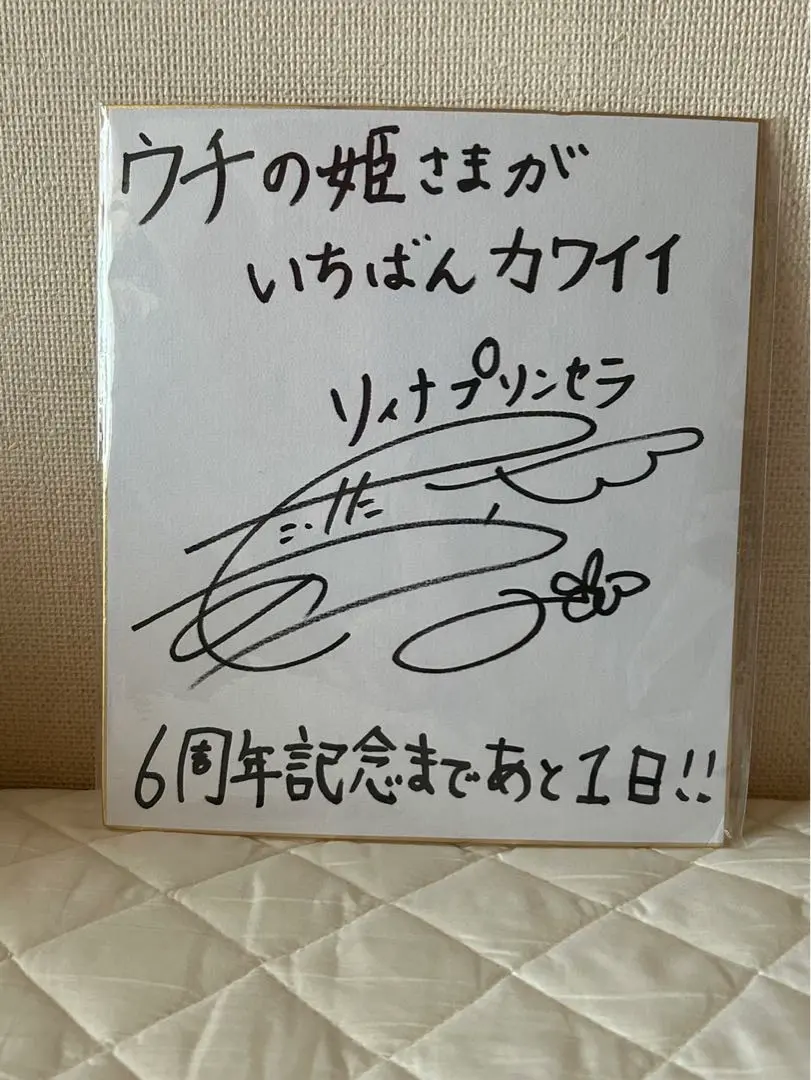 ウチの姫さまが
いちばんカワイイ
リィナプリンセラ
6周年記念まであと1日!!